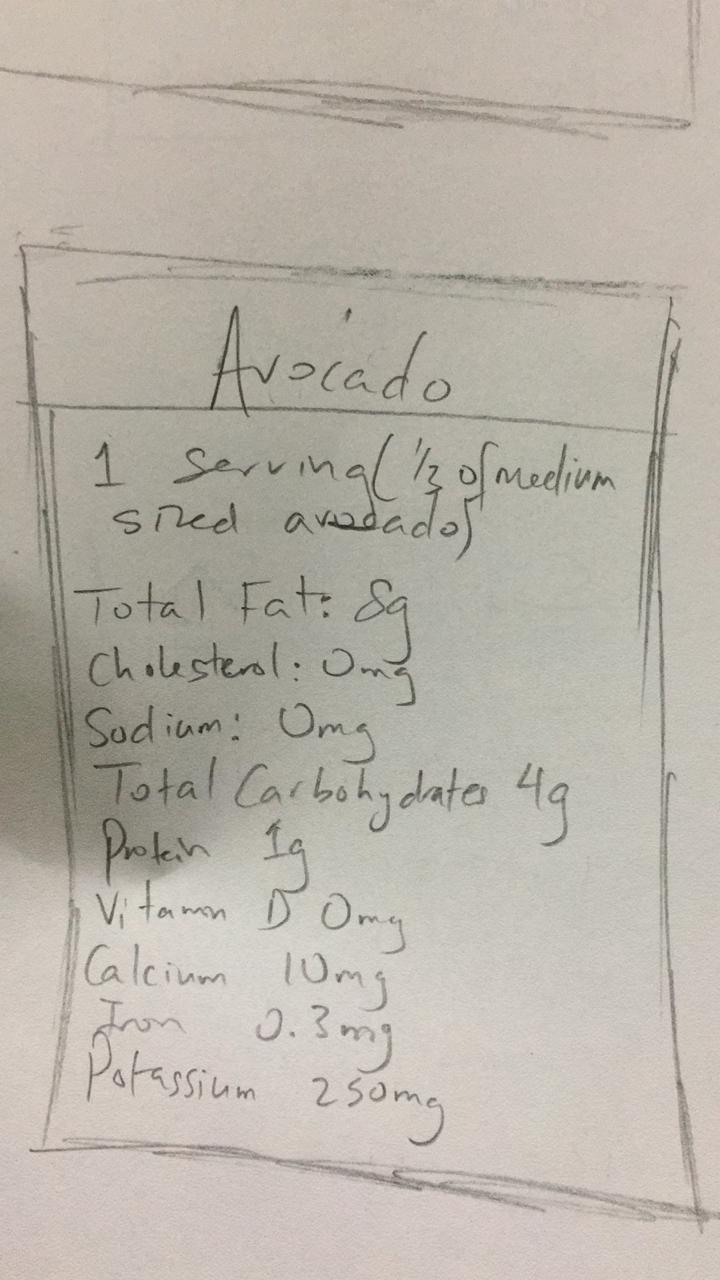 Avocado
1 Serving (1/3 of medium
sized avocado)
Total Fat: 8g
Cholesterol: 0mg
Sodium: 0mg
Total Carbohydrates 4g
Protein 1g
Vitamin D 0mg
Calcium 10mg
Iron 0.3mg
Potassium 250mg